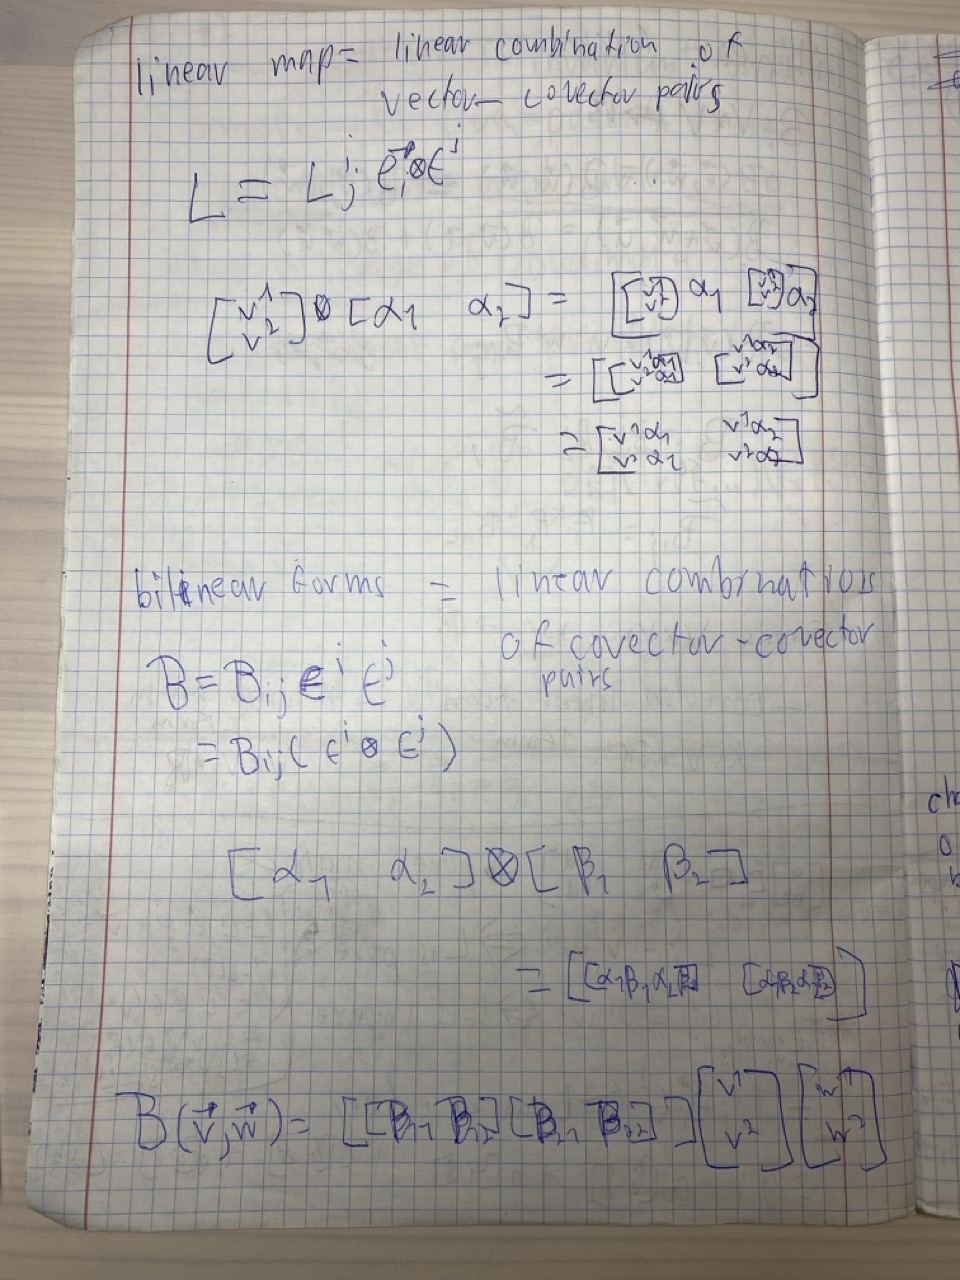 linear map= linear combination of
vector- covector pairs
L = L^i_j e⃗_i⊗ϵ^j
[v^1 v^2] ⊗ [α_1 α_2] = [[v^1 v^2] α_1 [v^1 v^2] α_2]
= [[v^1α_1 v^2α_1] [v^1α_2 v^2α_2]]
= [v^1α_1 v^1α_2
v^2α_1 v^2α_2]
bilinear forms = linear combinations
of covector-covector
pairs
B = B_ij ϵ^i ϵ^j
= B_ij( ϵ^i ⊗ ϵ^j )
[α_1 α_2] ⊗ [β_1 β_2]
= [[α_1β_1 α_2β_1] [α_1β_2 α_2β_2]]
B(v⃗,w⃗) = [[B_11 B_12] [B_21 B_22]] [v^1 v^2] [w^1 w^2]